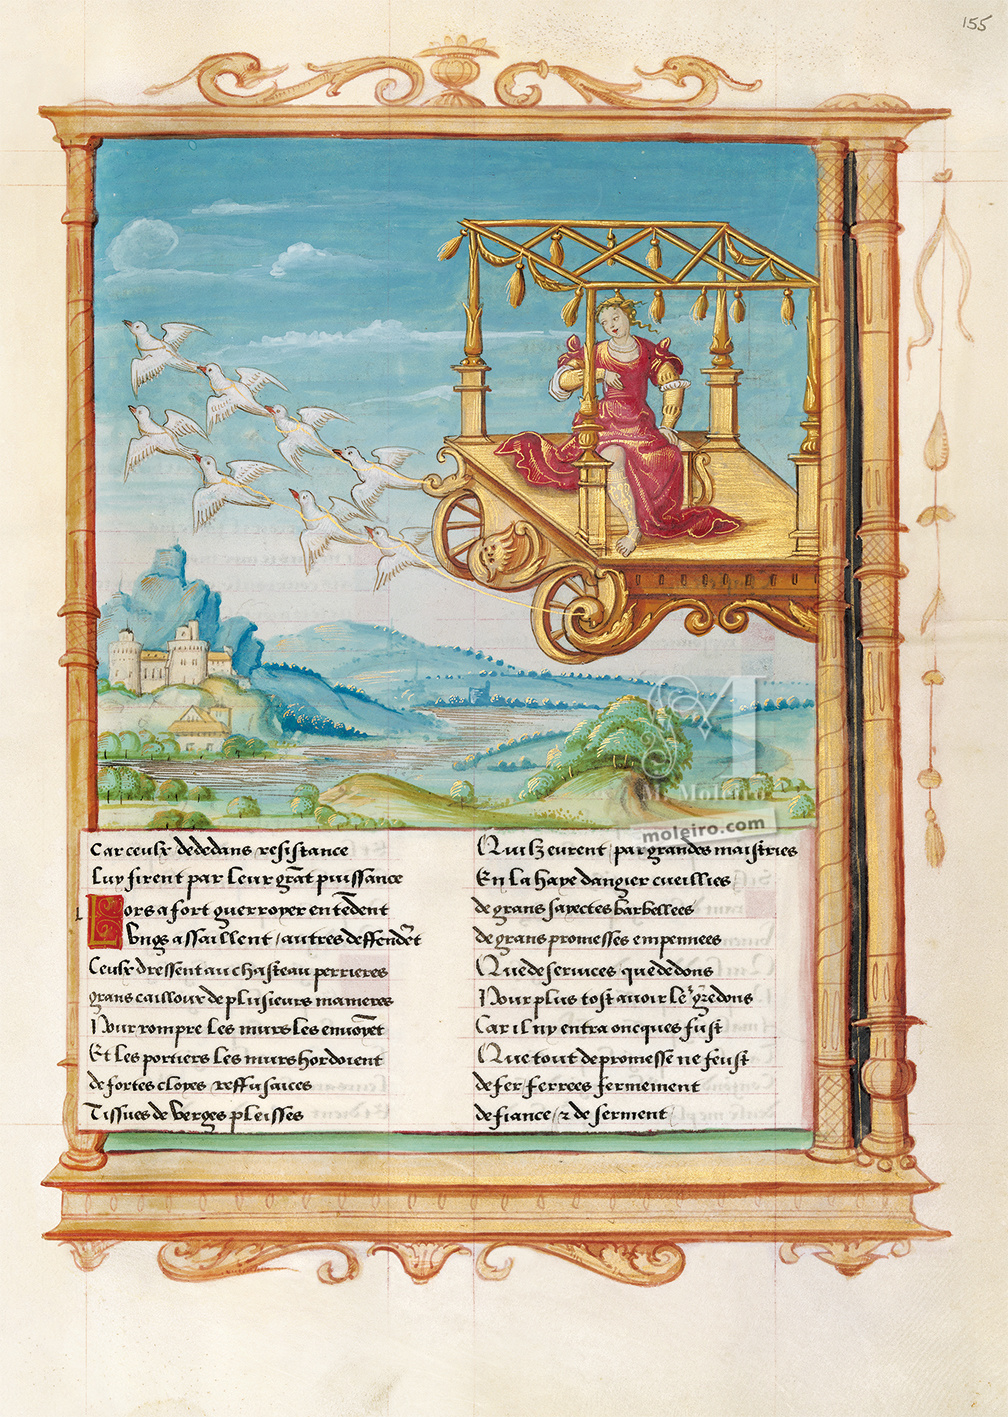 155
Car ceulx dededans resistance
Luy firent par leur grāt puissance
Lors a fort guerroyer entēdent
Lungs assaillent / autres deffendēt
Ceulx dressent au chasteau perrieres
grans cailloux de plusieurs manieres
Pour rompre les murs les enuoyēt
Et les portiers les murs hordoient
de fortes cloyes reffusaices
Tissues de verges pleisses
Quilz eurent / par grandes maistries
En la haye dangier cueillies
de grans sayectes barbellees
de grans promesses empennees
Que de seruices que de dons
Pour plus tost auoir les
Car il ny entra oncques fust
Que tout de promesse ne feust
de fer ferrees fermement
de fiance / ⁊ de serment
M. Moleiro
moleiro.com